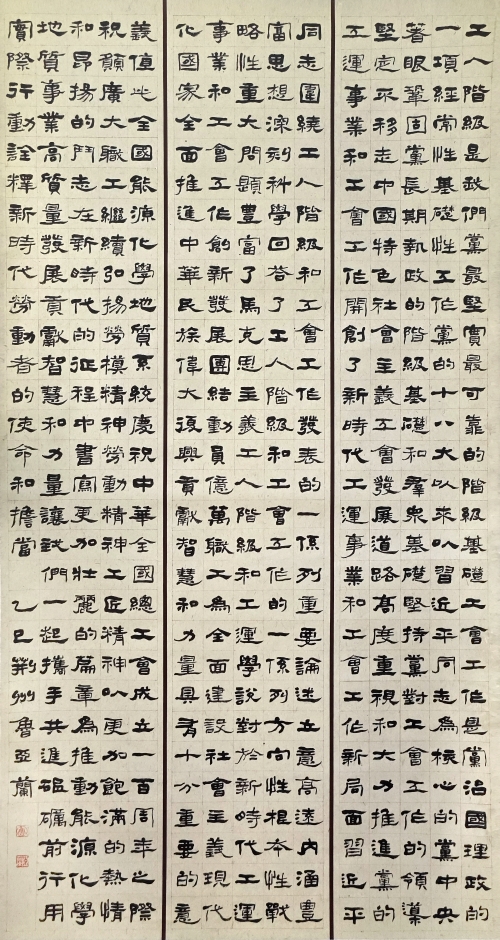 工人階級是我們黨最堅實最可靠的階級基礎工會工作是黨治國理政的
一項經常性基礎性工作黨的十八大以來以習近平同志為核心的黨中央
著眼鞏固黨長期執政的階級基礎和羣眾基礎堅持黨對工會工作的領導
堅定不移走中國特色社會主義工會發展道路高度重視和大力推進黨的
工運事業和工會工作開創了新時代工運事業和工會工作新局面習近平
同志圍繞工人階級和工會工作發表的一係列重要論述立意高遠內涵豐
富思想深刻科學回答了工人階級和工會工作的一係列方向性根本性戰
略性重大問題豐富了馬克思主義工人階級和工運學說對於新時代工運
事業和工會工作創新發展團結動員億萬職工為全面建設社會主義現代
化國家全面推進中華民族偉大復興貢獻智慧和力量具有十分重要的意
義值此全國能源化學地質系統慶祝中華全國總工會成立一百周年之際
祝願廣大職工繼續弘揚勞模精神勞動精神工匠精神以更加飽滿的熱情
和昂揚的鬥志在新時代的征程中書寫更加壯麗的篇章為推動能源化學
地質事業高質量發展貢獻智慧和力量讓我們一起攜手共進砥礪前行用
實際行動詮釋新時代勞動者的使命和擔當 乙巳荊州魯亞蘭